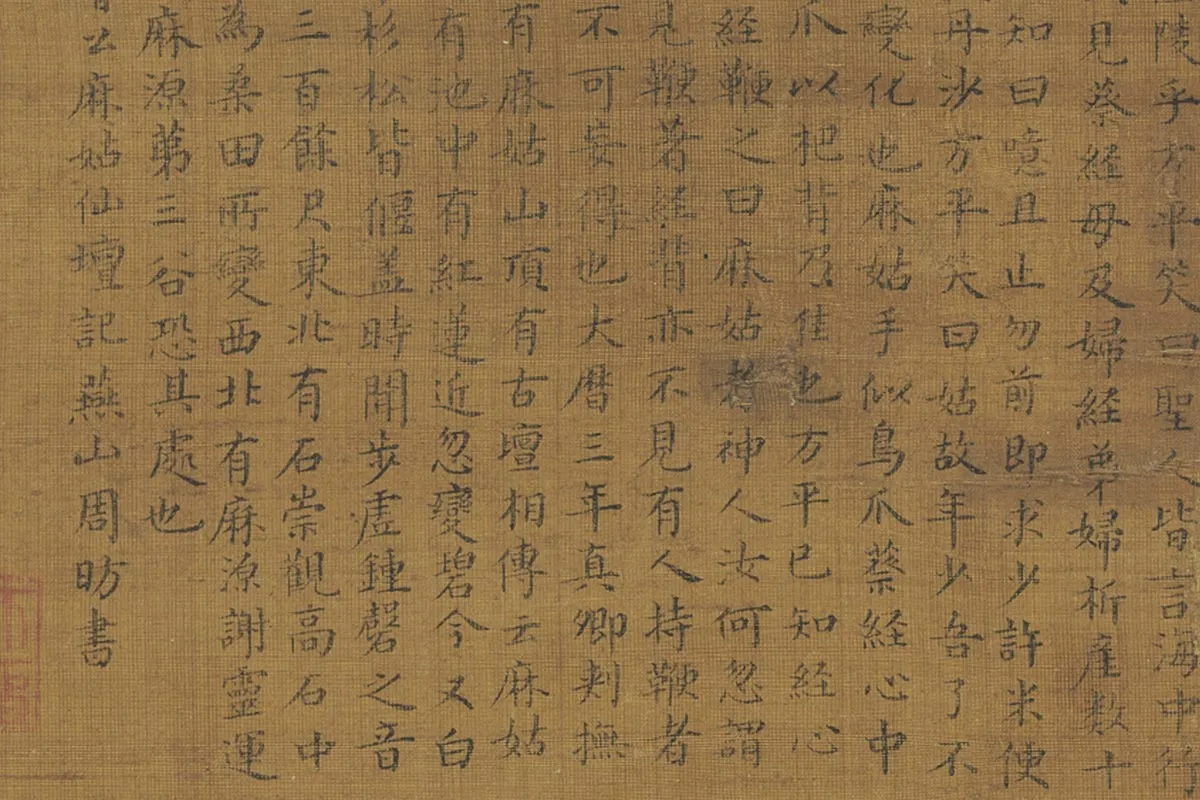 陵乎方平笑曰聖人皆言海中行
見蔡経母及婦経弟婦析産數十
知曰噫且止勿前即求少許米便
丹沙方平笑曰姑故年少吾了不
變化也麻姑手似鳥爪蔡経心中
爪以杷背乃佳也方平已知経心
経鞭之曰麻姑者神人汝何忽謂
見鞭著経背亦不見有人持鞭者
不可妄得也大暦三年真卿刾撫
有麻姑山頂有古壇相傳云麻姑
有池中有紅蓮近忽變碧今又白
杉松皆偃盖時聞步虛鍾磬之音
三百餘尺東北有石崇觀高石中
為桒田所變西北有麻源謝靈運
麻源苐三谷恐其處也
公麻姑仙壇記燕山周昉書